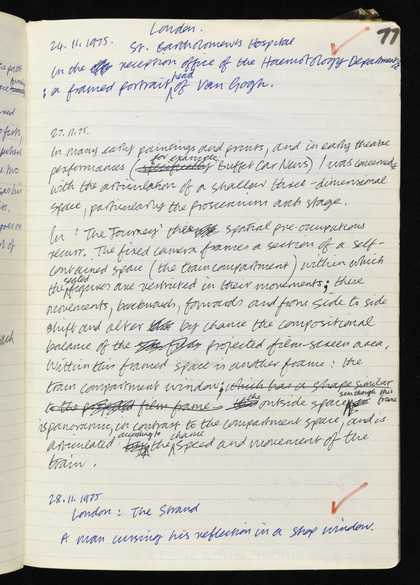 77
London.
24.11.1975. St. Bartholomew's Hospital
In the reception office of the Haematology Department
: a framed portrait head of Van Gogh.
27.11.75.
In many early paintings and prints, and in early theatre
performances (specifically for example Buffet Car News) I was concerned
with the articulation of a shallow three-dimensional
space, particularly the proscenium arch stage.
In 'The Journey' these spatial pre-occupations
recur. The fixed camera frames a section of a self-
contained space (the train compartment) within which
the seated figures are restricted in their movements; these
movements, backwards, forwards and from side to side
shift and alter by chance the compositional
balance of the projected film-screen area.
Within this framed space is another frame: the
train compartment window; which has a shape similar
to the projected film frame. the outside space seen through this frame
is panoramic, in contrast to the compartment space, and is
articulated according to the chance speed and movement of the
train.
28.11.1975
London: The Strand
A man cursing his reflection in a shop window.